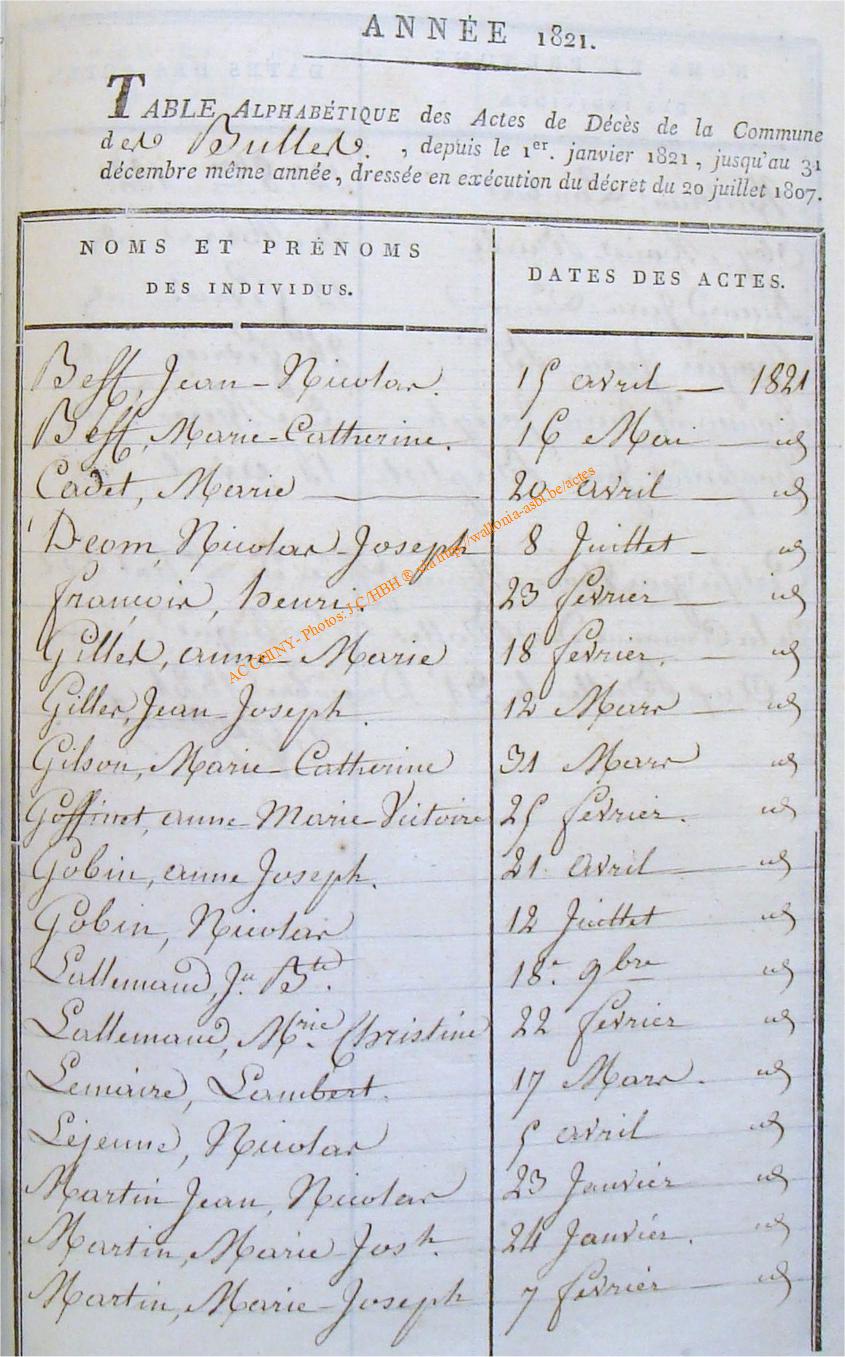 ANNÉE 1821.
TABLE ALPHABÉTIQUE des Actes de Décès de la Commune
des Bulles. , depuis le 1er. janvier 1821, jusqu'au 31
décembre même année, dressée en exécution du décret du 20 juillet 1807.
NOMS ET PRÉNOMS DES INDIVIDUS. DATES DES ACTES.
Beff, Jean-Nicolas. 15 avril — 1821
Beff, Marie-Catherine. 16 Mai — id
Cadet, Marie — 20 avril — id
Deom, Nicolas-Joseph 8 Juillet - id
françois, henri. 23 février — id
Gilles, anne-Marie 18 février. - id
Gilles, Jean-Joseph. 12 Mars — id
Gilson, Marie-Catherine 31 Mars id
Goffinet, anne Marie-Victoire 25 février. id
Gobin, anne Joseph. 21 avril — id
Gobin, Nicolas 12 Juillet id
Lallemand, Jn. Bte. 18. 9bre id
Lallemand, Mrie. Christine 22 février id
Lemaire, Lambert. 17 Mars. id
Lejeune, Nicolas 5 avril id
Martin Jean, Nicolas 23 Janvier id
Martin, Marie Josh. 24 Janvier. id
Martin, Marie-Joseph 7 février — id
AC CHINY - Photos: J.C/HBH ® via http://wallonia-asbl.be/actes